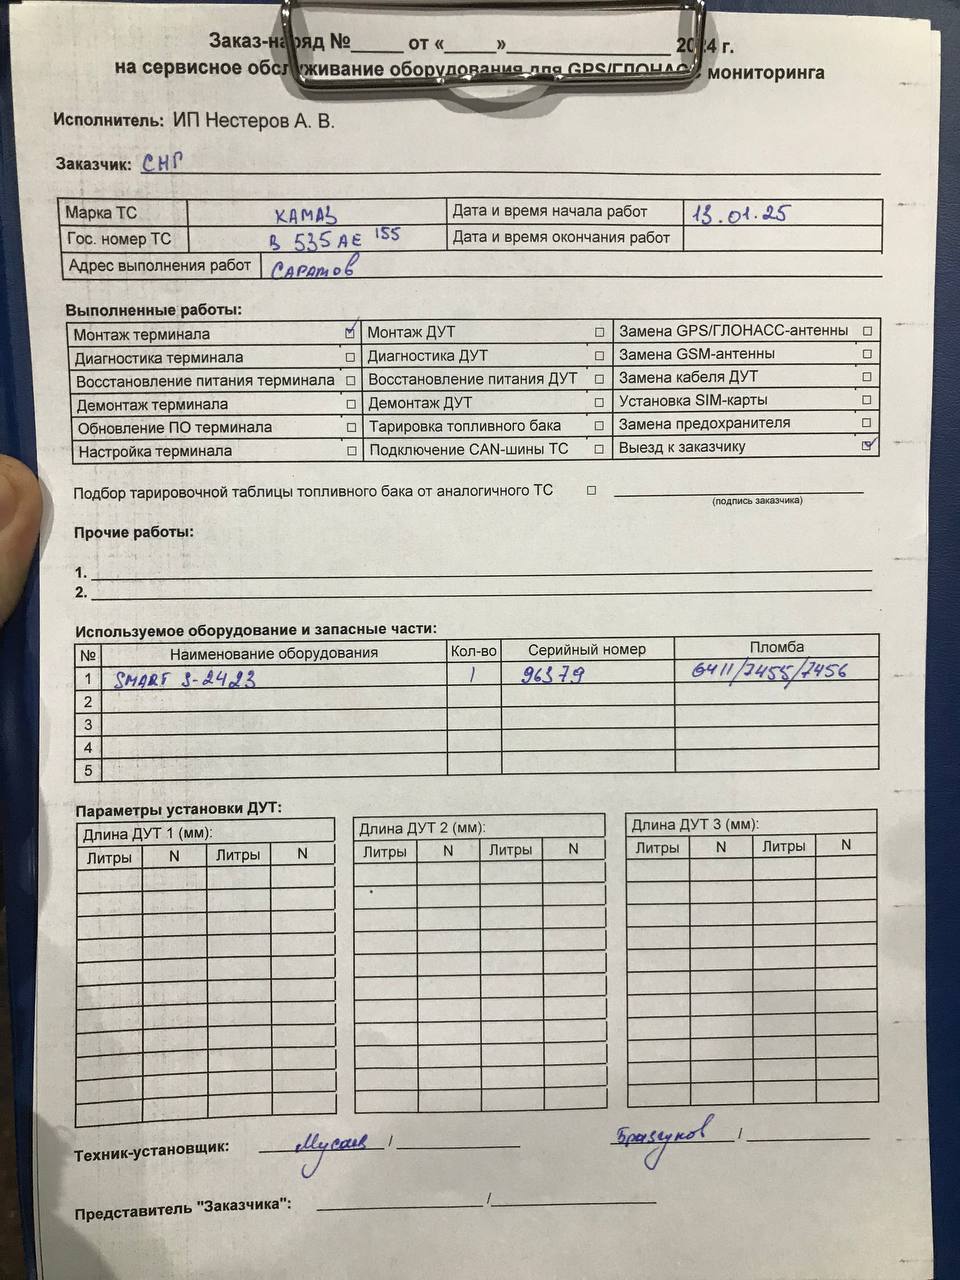 Заказ-наряд №_____ от «_____»_______________ 2024 г.
на сервисное обслуживание оборудования для GPS/ГЛОНАСС мониторинга
Исполнитель: ИП Нестеров А. В.
Заказчик: СНГ
Марка ТС КАМАЗ Дата и время начала работ 13.01.25
Гос. номер ТС В 535 АЕ 155 Дата и время окончания работ
Адрес выполнения работ Саратов
Выполненные работы:
Монтаж терминала ☑ Монтаж ДУТ ☐ Замена GPS/ГЛОНАСС-антенны ☐
Диагностика терминала ☐ Диагностика ДУТ ☐ Замена GSM-антенны ☐
Восстановление питания терминала ☐ Восстановление питания ДУТ ☐ Замена кабеля ДУТ ☐
Демонтаж терминала ☐ Демонтаж ДУТ ☐ Установка SIM-карты ☐
Обновление ПО терминала ☐ Тарировка топливного бака ☐ Замена предохранителя ☐
Настройка терминала ☐ Подключение CAN-шины ТС ☐ Выезд к заказчику ☑
Подбор тарировочной таблицы топливного бака от аналогичного ТС ☐
(подпись заказчика)
Прочие работы:
1.
2.
Используемое оборудование и запасные части:
№ Наименование оборудования Кол-во Серийный номер Пломба
1 SMART S-2423 1 96379 6411/7455/7456
2
3
4
5
Параметры установки ДУТ:
Длина ДУТ 1 (мм): Длина ДУТ 2 (мм): Длина ДУТ 3 (мм):
Литры N Литры N Литры N Литры N Литры N Литры N
Техник-установщик: Мусаев / Бразгунов /
Представитель "Заказчика": /